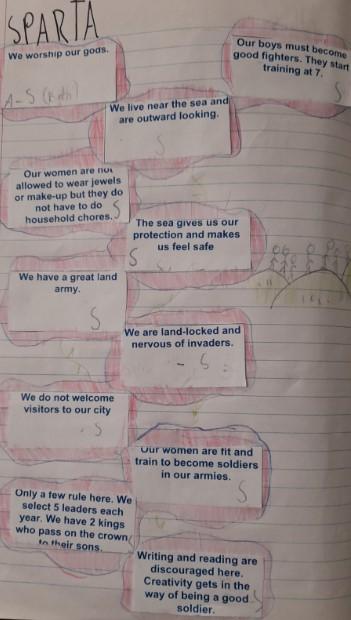 SPARTA
We worship our gods.
A-S (Both)
Our boys must become
good fighters. They start
training at 7.
S
We live near the sea and
are outward looking.
S
Our women are not
allowed to wear jewels
or make-up but they do
not have to do
household chores.
S
The sea gives us our
protection and makes
us feel safe
S
We have a great land
army.
S
We are land-locked and
nervous of invaders.
- S
We do not welcome
visitors to our city
S
Our women are fit and
train to become soldiers
in our armies.
S
Only a few rule here. We
select 5 leaders each
year. We have 2 kings
who pass on the crown
to their sons.
Writing and reading are
discouraged here.
Creativity gets in the
way of being a good
soldier.
S